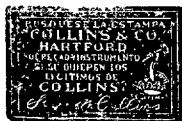 BUSQUESE LA ESTAMPA
COLLINS & CO.
HARTFORD
EN CADA INSTRUMENTO
SI SE QUIEREN LOS
LEGITIMOS DE
COLLINS